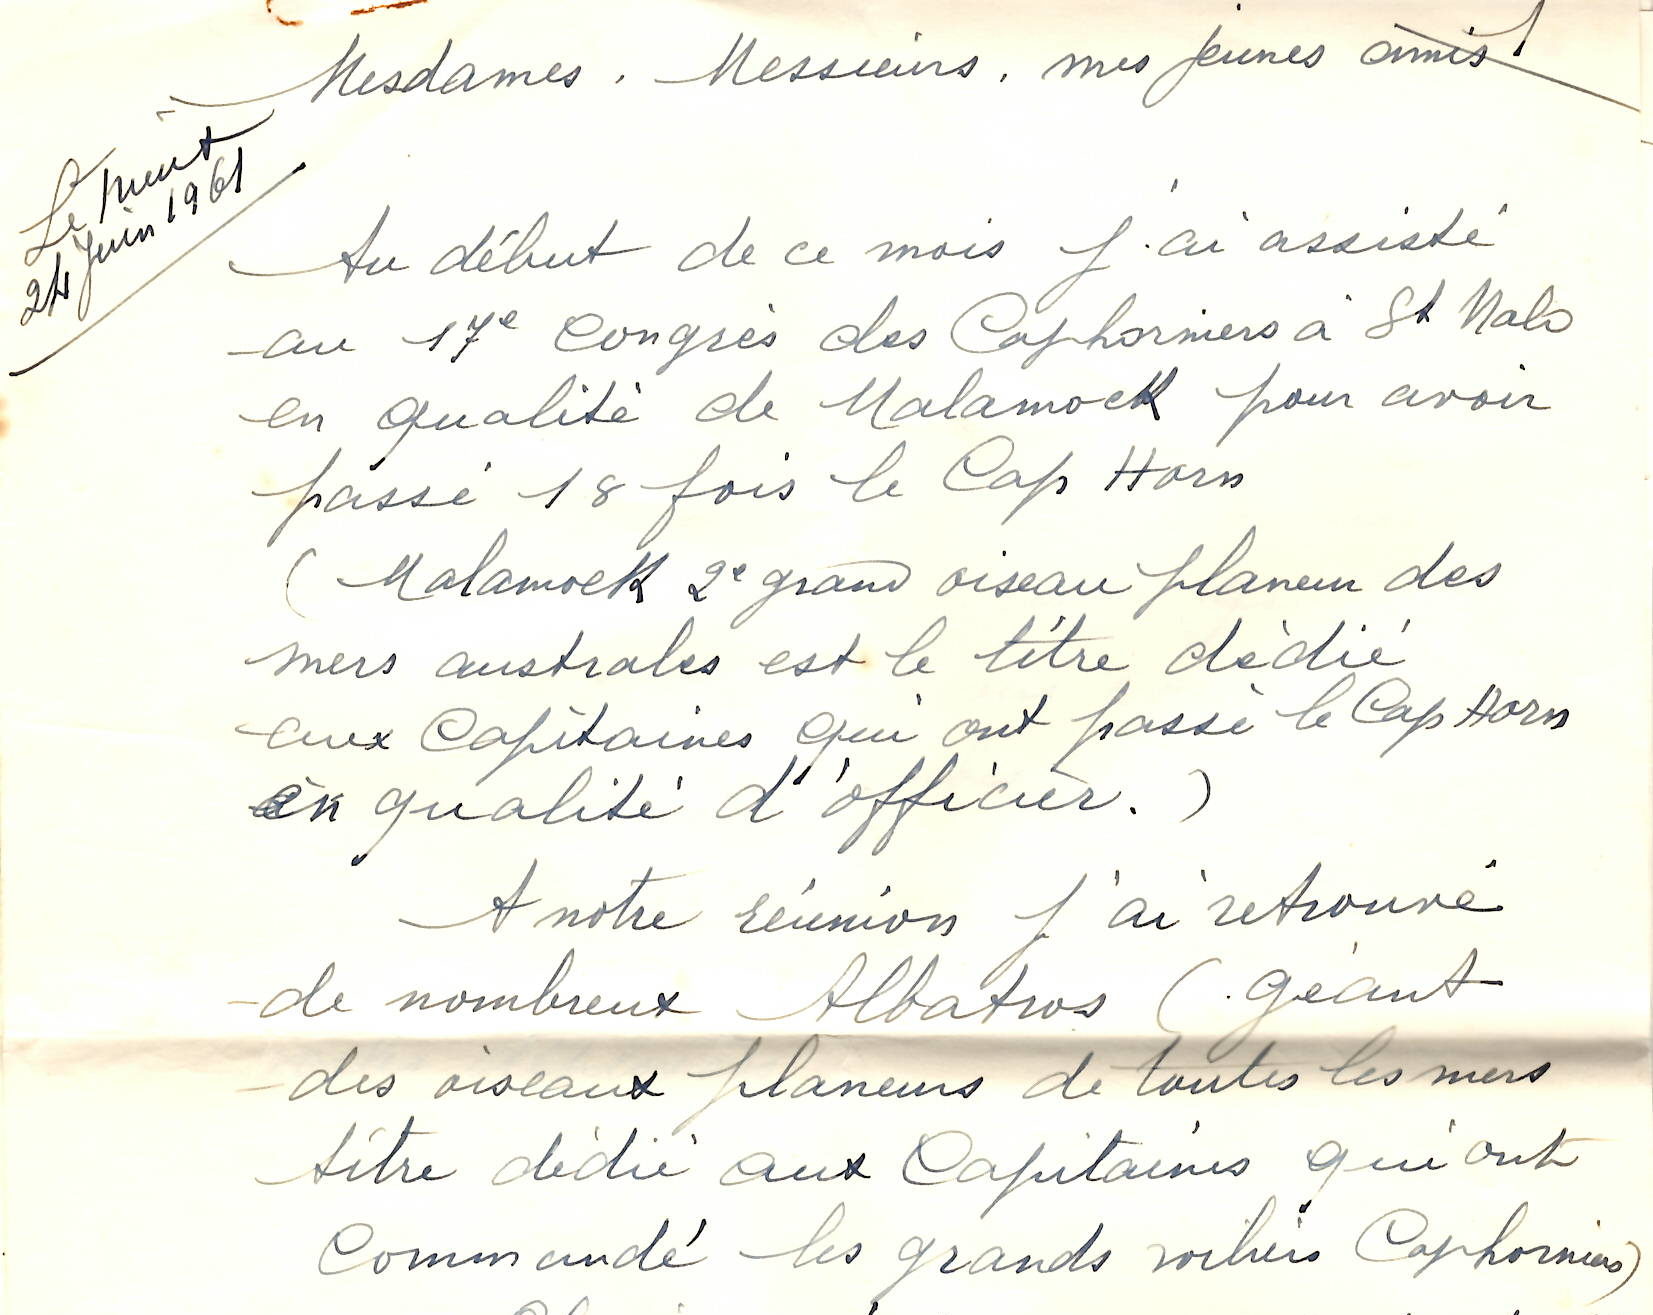 Mesdames. Messieurs, mes jeunes amis!
Le
24 Juin 1961
Au début de ce mois j'ai assisté
au 17e Congrès des Caphorniers à St Malo
en qualité de Malamock pour avoir
passé 18 fois le Cap Horn
(Malamock 2e grand oiseau planeur des
mers australes est le titre dédié
aux Capitaines qui ont passé le Cap Horn
en qualité d'officier.)
A notre réunion j'ai retrouvé
de nombreux Albatros (Géant
des oiseaux planeurs de toutes les mers
titre dédié aux Capitaines qui ont
Commandé les grands voiliers Caphorniers)